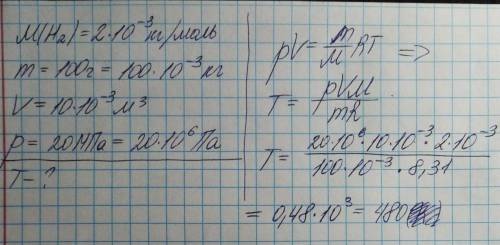 M(H₂) = 2·10⁻³ кг/моль
m = 100г = 100·10⁻³ кг
V = 10·10⁻³ м³
p = 20МПа = 20·10⁶ Па
T - ?
pV = m/M RT =>
T = pVM/mR
T = 20·10⁶·10·10⁻³·2·10⁻³/100·10⁻³·8,31
= 0,48·10³ = 480